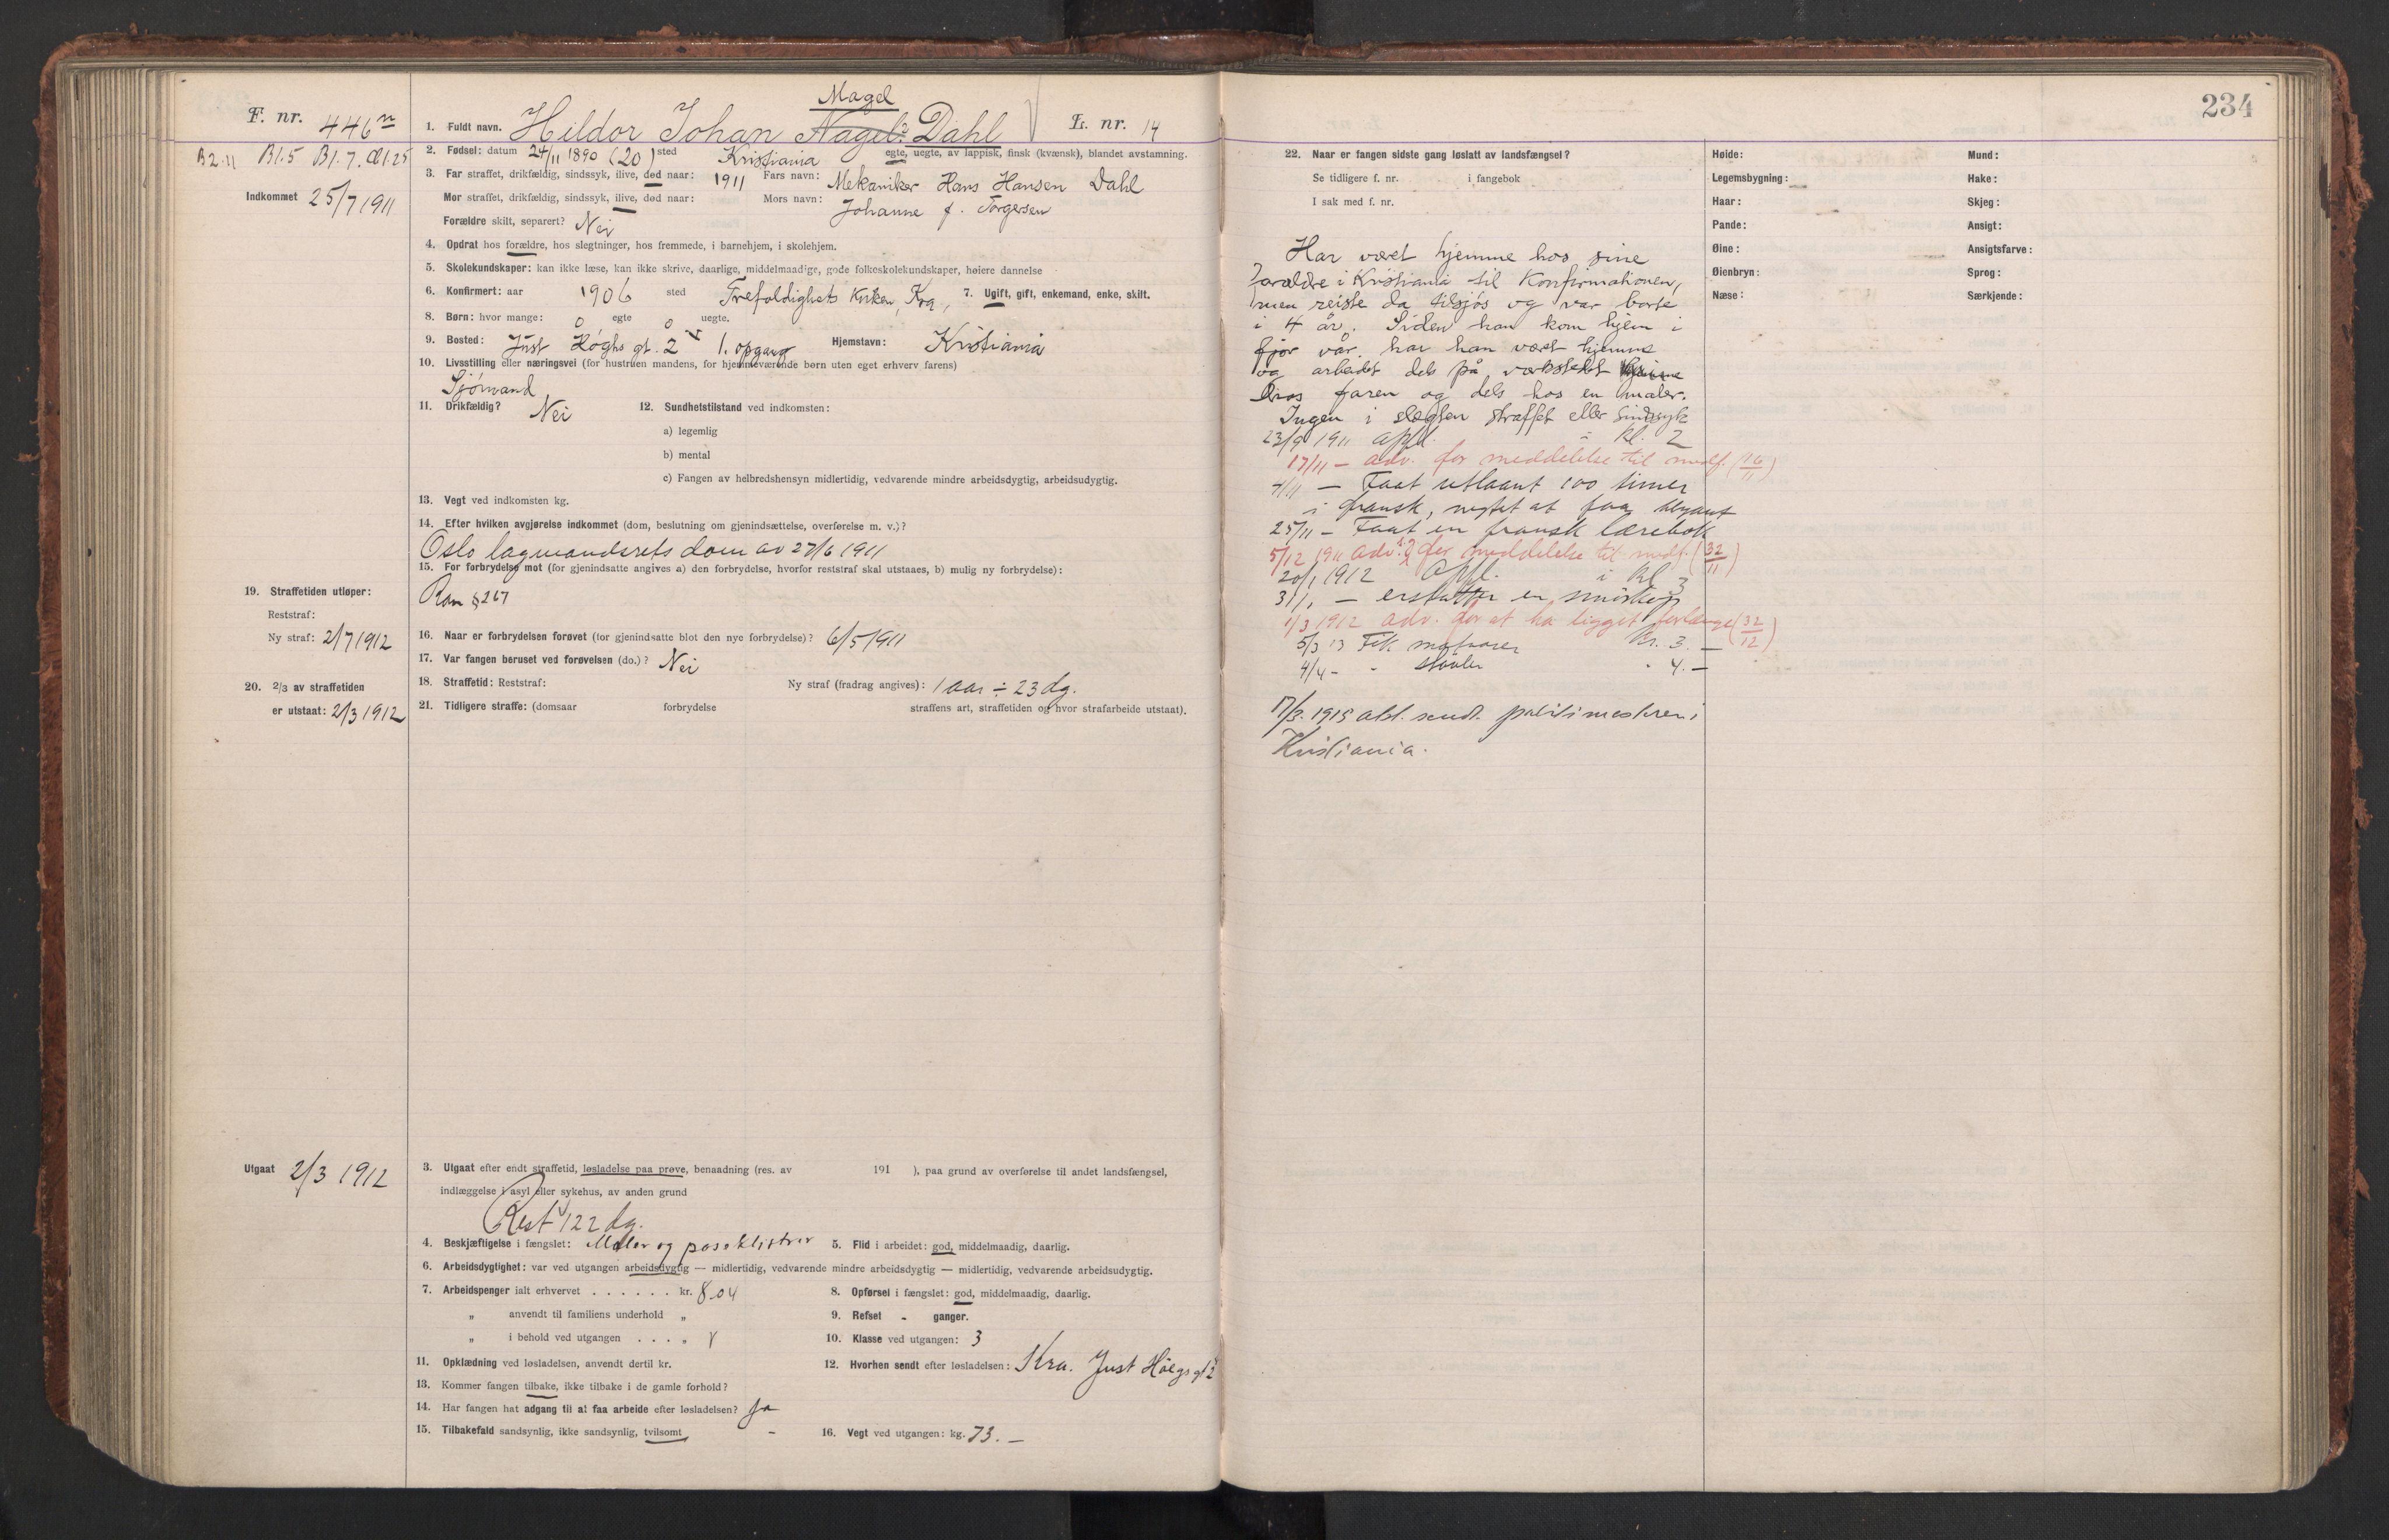 Magel
F. nr. 446 n
1. Fuldt navn. Hildor Johan Nagel? Dahl
L. nr. 14
B2.11 B1.5 B1.7. Œ1.25
2. Fødsel: datum 24/11 1890 (20) sted Kristiania egte, uegte, av lappisk, finsk (kvænsk), blandet avstamning.
Indkommet 25/7 1911
3. Far straffet, drikfældig, sindssyk, ilive, død naar: 1911 Fars navn: Mekaniker Hans Hansen Dahl
Mor straffet, drikfældig, sindssyk, ilive, død naar: Mors navn: Johanne f. Torgersen
Forældre skilt, separert? Nei
4. Opdrat hos forældre, hos slegtninger, hos fremmede, i barnehjem, i skolehjem.
5. Skolekundskaper: kan ikke læse, kan ikke skrive, daarlige, middelmaadige, gode folkeskolekundskaper, høiere dannelse
6. Konfirmert: aar 1906 sted Trefoldighets Kirken, Kra, 7. Ugift, gift, enkemand, enke, skilt.
8. Børn: hvor mange: 0 egte 0 uegte.
9. Bosted: Just Høghs gt. 2 V 1. opgang Hjemstavn: Kristiania
10. Livsstilling eller næringsvei (for hustruen mandens, for hjemmeværende børn uten eget erhverv farens)
Sjømand
11. Drikfældig? Nei 12. Sundhetstilstand ved indkomsten:
a) legemlig
b) mental
c) Fangen av helbredshensyn midlertidig, vedvarende mindre arbeidsdygtig, arbeidsudygtig.
13. Vegt ved indkomsten kg.
14. Efter hvilken avgjørelse indkommet (dom, beslutning om gjenindsættelse, overførelse m. v.)?
Oslo lagmandsrets dom av 27/6 1911
15. For forbrydelse mot (for gjenindsatte angives a) den forbrydelse, hvorfor reststraf skal utstaaes, b) mulig ny forbrydelse):
Ran § 267
19. Straffetiden utløper:
Reststraf:
Ny straf: 2/7 1912
16. Naar er forbrydelsen forøvet (for gjenindsatte blot den nye forbrydelse)? 6/5 1911
17. Var fangen beruset ved forøvelsen (do.)? Nei
20. 2/3 av straffetiden
er utstaat: 2/3 1912
18. Straffetid: Reststraf: Ny straf (fradrag angives): 1 aar ÷ 23 dg.
21. Tidligere straffe: (domsaar forbrydelse straffens art, straffetiden og hvor strafarbeide utstaat).
Utgaat 2/3 1912
3. Utgaat efter endt straffetid, løsladelse paa prøve, benaadning (res. av 191 ), paa grund av overførelse til andet landsfængsel,
indlæggelse i asyl eller sykehus, av anden grund
Rest 122 dg.
4. Beskjæftigelse i fængslet: Maler og poseklistrer 5. Flid i arbeidet: god, middelmaadig, daarlig.
6. Arbeidsdygtighet: var ved utgangen arbeidsdygtig — midlertidig, vedvarende mindre arbeidsdygtig — midlertidig, vedvarende arbeidsudygtig.
7. Arbeidspenger ialt erhvervet . . . . . . kr. 8.04 8. Opførsel i fængslet: god, middelmaadig, daarlig.
" anvendt til familiens underhold " 9. Refset - ganger.
" i behold ved utgangen . . . " 10. Klasse ved utgangen: 3
11. Opklædning ved løsladelsen, anvendt dertil kr. 12. Hvorhen sendt efter løsladelsen: Kra. Just Höegs gt 2
13. Kommer fangen tilbake, ikke tilbake i de gamle forhold?
14. Har fangen hat adgang til at faa arbeide efter løsladelsen? Ja
15. Tilbakefald sandsynlig, ikke sandsynlig, tvilsomt - 16. Vegt ved utgangen: kg. 73. —
234
22. Naar er fangen sidste gang løslatt av landsfængsel?
Se tidligere f. nr. i fangebok
I sak med f. nr.
Har været hjemme hos sine
forældre i Kristiania til Konfirmationen,
men reiste da tilsjøs og var borte
i 4 år. Siden han kom hjem i
fjor vår har han været hjemme
og arbeidet dels på værkstedet
hos faren og dels hos en maler.
Ingen i slægten straffet eller sindssyk
23/9 1911 Opfl. i Kl. 2
17/11 — adv. for meddelelse til medf. (26/11)
— Faat utlaant 100 timer
i fransk, negtet at faa
25/11 — Faat en fransk lærebok
5/12 1911 adv. for meddelelse til medf. (32/11)
20/1 1912 Opfl. i Kl. 3
31/1 — erstatter en
1/3 1912 adv. for at ha ligget forlænge (32/12)
5/3 13 Fik Kr. 3. —
4/4 - " støvler " 4. —
17/3. 1915 sendt politimesteren i
Kristiania.
Høide:
Legemsbygning:
Haar:
Pande:
Øine:
Øienbryn:
Næse:
Mund:
Hake:
Skjeg:
Ansigt:
Ansigtsfarve:
Sprog:
Særkjende: